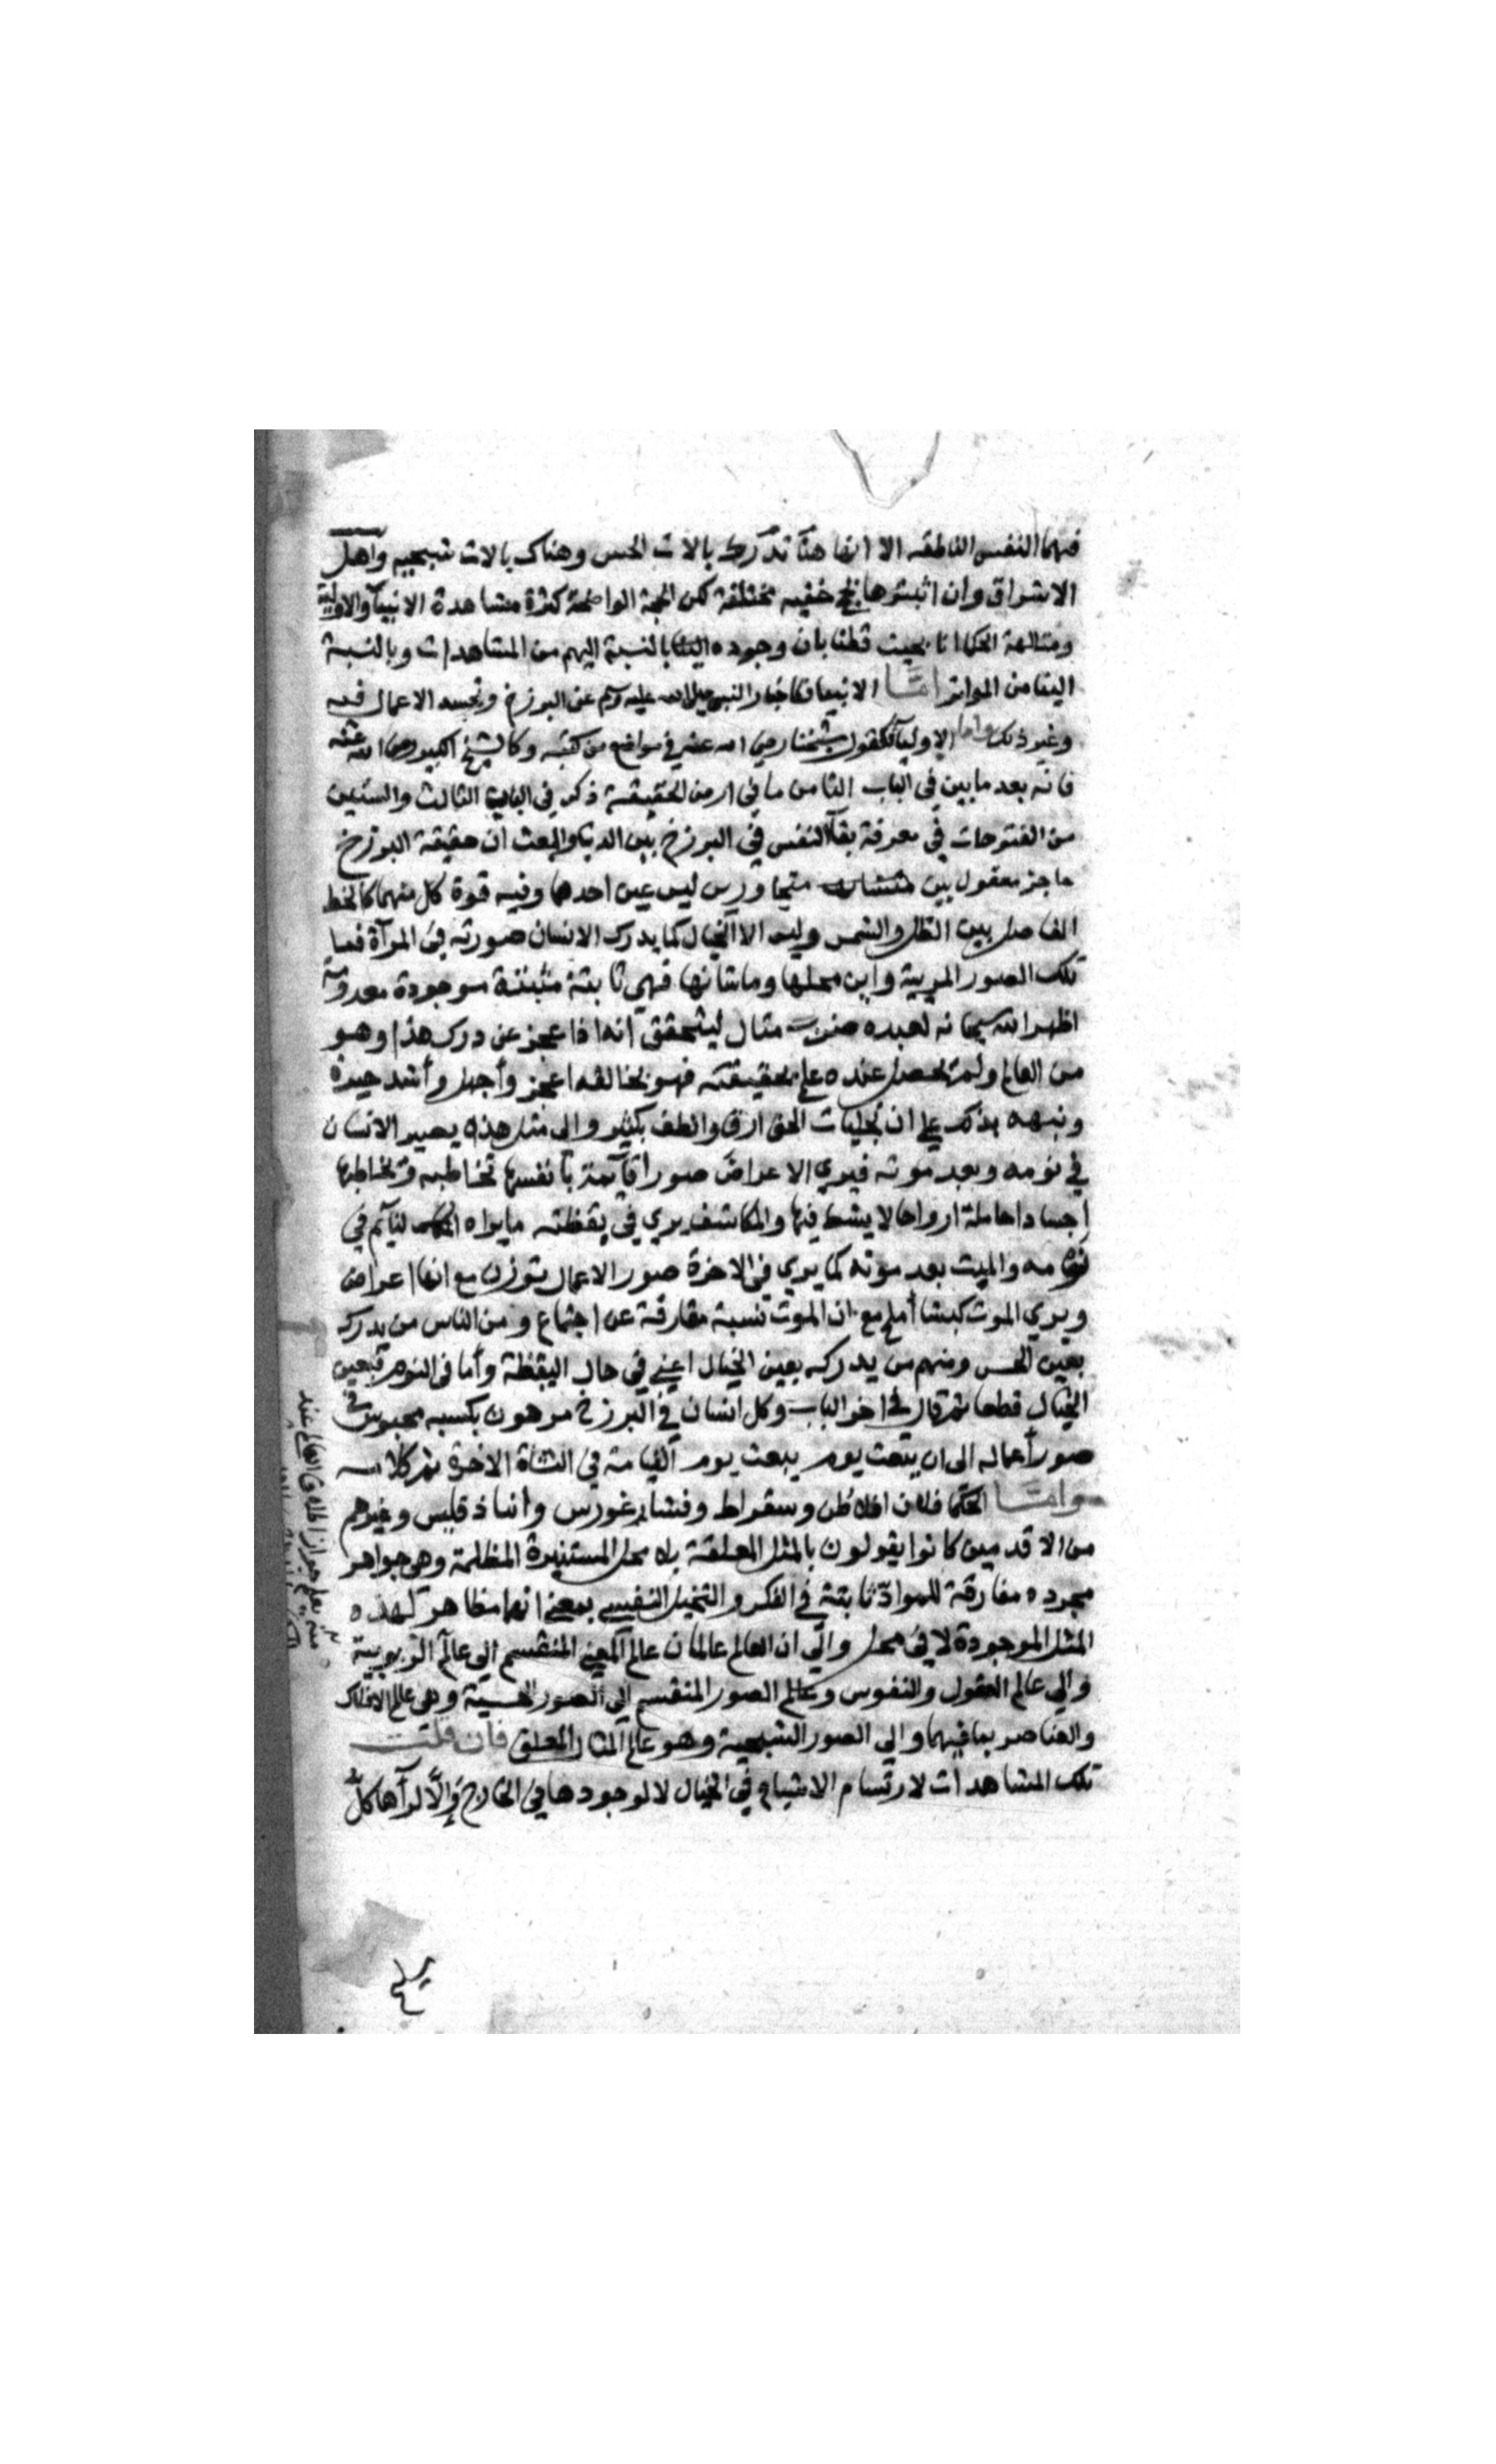 فيهما النفس الناطقه الا انها هنا تدرك بالات الحس وهناك بالات شبحيه واهل
الاشراق وان اثبتوها بحجج خفيه مختلفة لكن الحجة الواضحة كثرة مشاهدة الانبيآ والاوليآ
ومتالهة الحكما بحيث قطنا بان وجوده بالنسبة اليهم من المشاهدات وبالنسبة
الينا من المواتر امّا الانبيا فكاخبار النبي صلى الله عليه وسلم عن البرزخ وتجسد الاعمال فيه
وغير ذلك واما الاوليآ فكقول شيخنا رضي الله عنه في مواضع من كتبه وكالشيخ الكبير رضي الله عنه
فانه بعد ما بين في الباب الثامن ما في ارض الحقيقة ذكر في الباب الثالث والستين
من الفتوحات في معرفة بقآ النفس في البرزخ بين الدنيا والبعث ان حقيقة البرزخ
حاجز معقول بين متجاورين ليس عين احدهما وفيه قوة كل منهما كالخط
الفاصل بين الظل والشمس وليس الا الخيال كما يدرك الانسان صورته في المرآة فما
تلك الصور المريية واين محلها وما شانها فهي ثابتة موجودة معدومة
اظهر الله سبحانه لعبده ضرب مثال ليتحقق انه اذا عجز عن درك هذا وهو
من العالم ولم يحصل عنده علم بحقيقته فهو بخالقه اعجز وأجهل وأشد حيرة
ونبهه بذلك على ان تجليات الحق ارق والطف بكثير والى مثل هذه يصير الانسان
في نومه وبعد موته فيرى الاعراض صورا قآيمة بأنفسها تخاطبه وتخاطبها
اجسادا حاملة ارواحا لا يشك فيها والمكاشف يرى في يقظته ما يراه النآيم في
نومه والميت بعد موته كما يرى في الاخرة صور الاعمال توزن مع انها اعراض
ويرى الموت كبشا أملح مع ان الموت نسبة مفارقة عن اجتماع ومن الناس من يدرك
بعين الحس ومنهم من يدركه بعين الخيال اعني في حال اليقظة وأما في النوم فبعين
الخيال قطعا ثم قال في اخر الباب وكل انسان في البرزخ مرهون بكسبه محبوس في
صور أعماله الى ان يبعث يوم القيامة في النشاة الاخرة تم كلامه
وامّا الحكما فلان افلاطن وسقراط وفيثاغورس وانباذقليس وغيرهم
من الاقدمين كانوا يقولون بالمثل المعلقة بلا محل المستنيرة المظلمة وهي جواهر
مجرده مفارقة للموادّ ثابتة في الفكر والتخيل النفسي بمعنى انهما مظاهر لهذه
المثل الموجودة لا في محل والى ان العالم عالمان عالم المعنى المنقسم الى عالم الربوبية
والى عالم العقول والنفوس وعالم الصور المنقسم الى الصور الحسية وهي عالم الافلاك
والعناصر بما فيهما والى الصور الشبحية وهو عالم المثال المعلق فان قلت
تلك المشاهدات لارتسام الاشباح في الخيال لا لوجودها في الخارج وَإلّا لرآها كلُّ